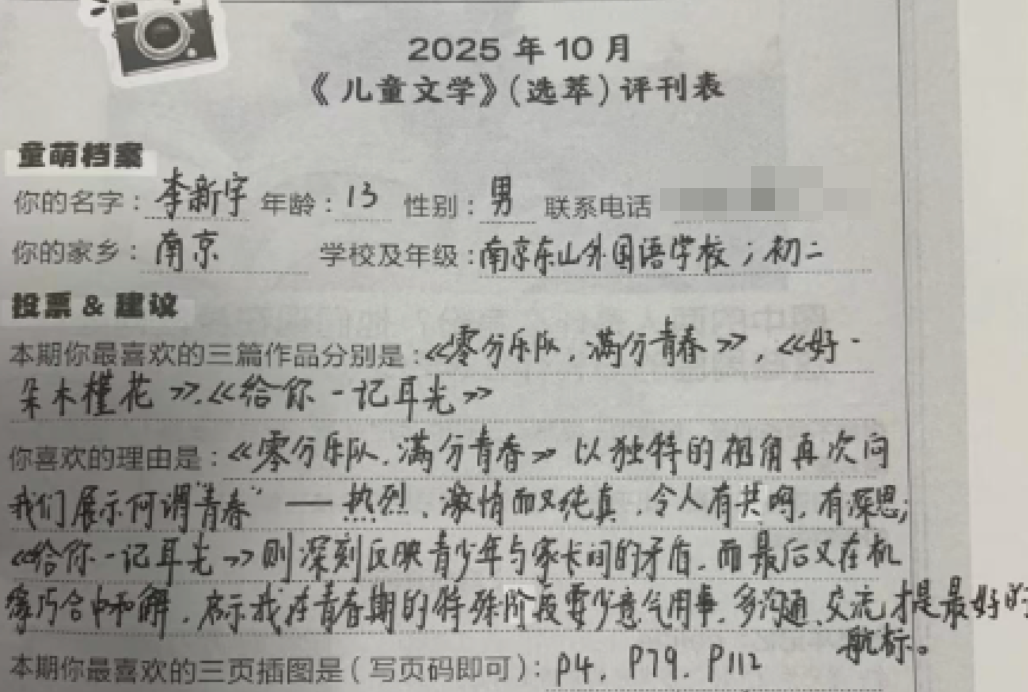 2025年10月
《儿童文学》(选萃)评刊表
童萌档案
你的名字：李新宇 年龄：13 性别：男 联系电话
你的家乡：南京 学校及年级：南京东山外国语学校；初二
投票&建议
本期你最喜欢的三篇作品分别是：《零分乐队，满分青春》，《好一
朵木槿花》、《给你一记耳光》
你喜欢的理由是：《零分乐队，满分青春》以独特的视角再次向
我们展示何谓"青春"——热烈、激情而又纯真，令人有共鸣，有深思；
《给你一记耳光》则深刻反映青少年与家长间的矛盾，而最后又在机
缘巧合中和解，启示我在青春期的特殊阶段要少意气用事，多沟通、交流，才是最好的
航标。
本期你最喜欢的三页插图是(写页码即可)：P4，P79，P112